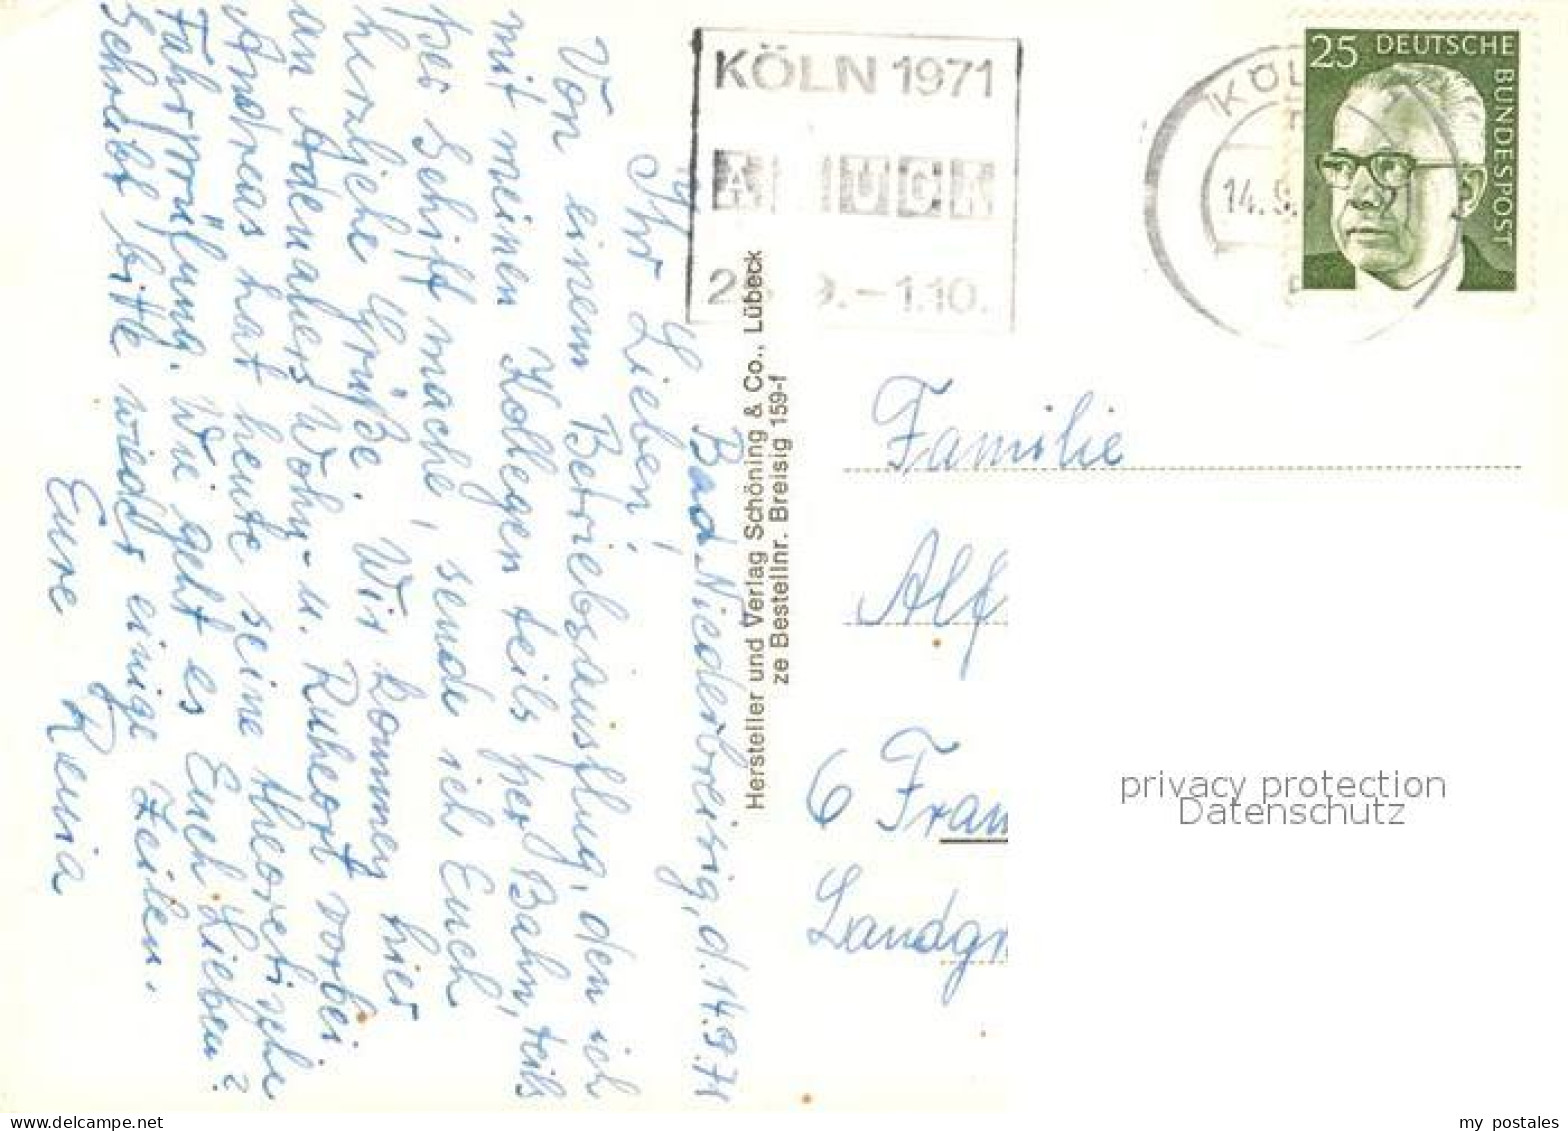 Bad Niederbreisig, d. 14.9.71
Ihr Lieben!
Von einem Betriebsausflug, den ich
mit meinen Kollegen teils per Bahn, teils
per Schiff mache, sende ich Euch
herzliche Grüße. Wir kommen hier
an Adenauers Wohn- u. Ruheort vorbei.
Andreas hat heute seine theoretische
Fahrprüfung. Wie geht es Euch Lieben?
Schreibt bitte wieder einige Zeilen.
Eure
Hersteller und Verlag Schöning & Co., Lübeck
ze Bestellnr. Breisig 159-f
KÖLN 1971
9.–1.10.
14.9.
25 DEUTSCHE BUNDESPOST
Familie
Alf
6 Fran
Landgr
privacy protection
Datenschutz
my postales